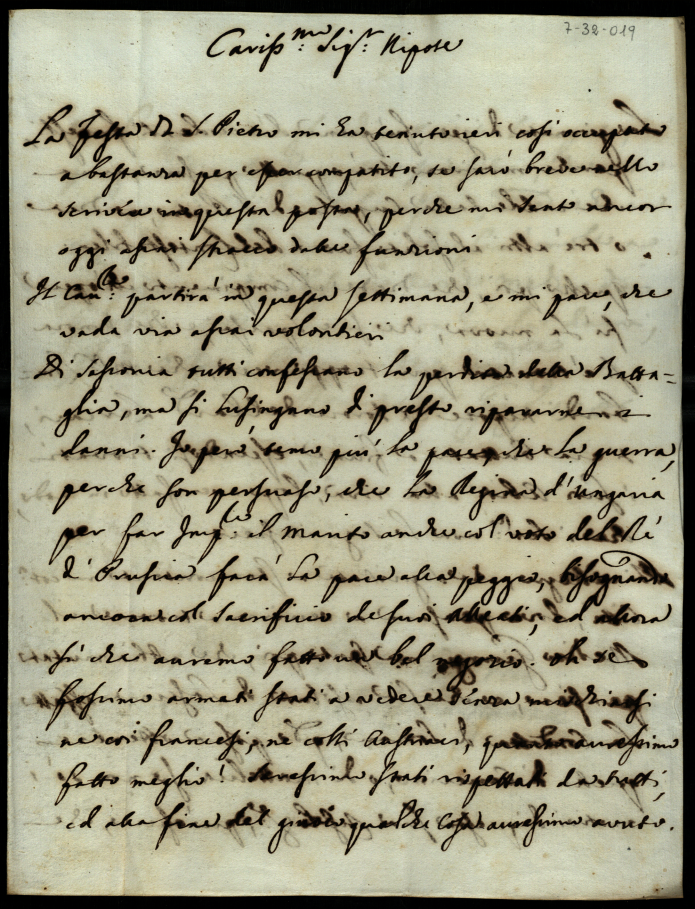 7-32-019
Cariss.mo Sig.r Nipote
La Festa di S. Pietro mi ha tenuto ieri così occupato
abastanza per esser compatito, se sarò breve nello
scrivere in questa posta, perche mi sento ancor
oggi assai stracco dalle funzioni
Il Can.co partirà in questa settimana, e mi pare, che
vada via assai volontieri
Di Sassonia tutti confessano la perdita della Batta=
glia, ma si lusingano di presto ripararne i
danni. Io però temo più la pace, che la guerra,
perche son persuaso, che la Regina d'Ungaria
per far Imp.re il marito anche col voto del Rè
d'Prussia farà la pace alla peggio, bisognando
ancora col sacrificio de suoi Alleati, ed allora
sì che auremo fatto un bel negozio. Oh se
fossimo armati stati a vedere senza mischiarsi
ne coi francesi, ne colli Austriaci, quanto auressimo
fatto meglio! Saressimo stati rispettati da tutti,
ed alla fine del giuoco qualche cosa auressimo avuto.